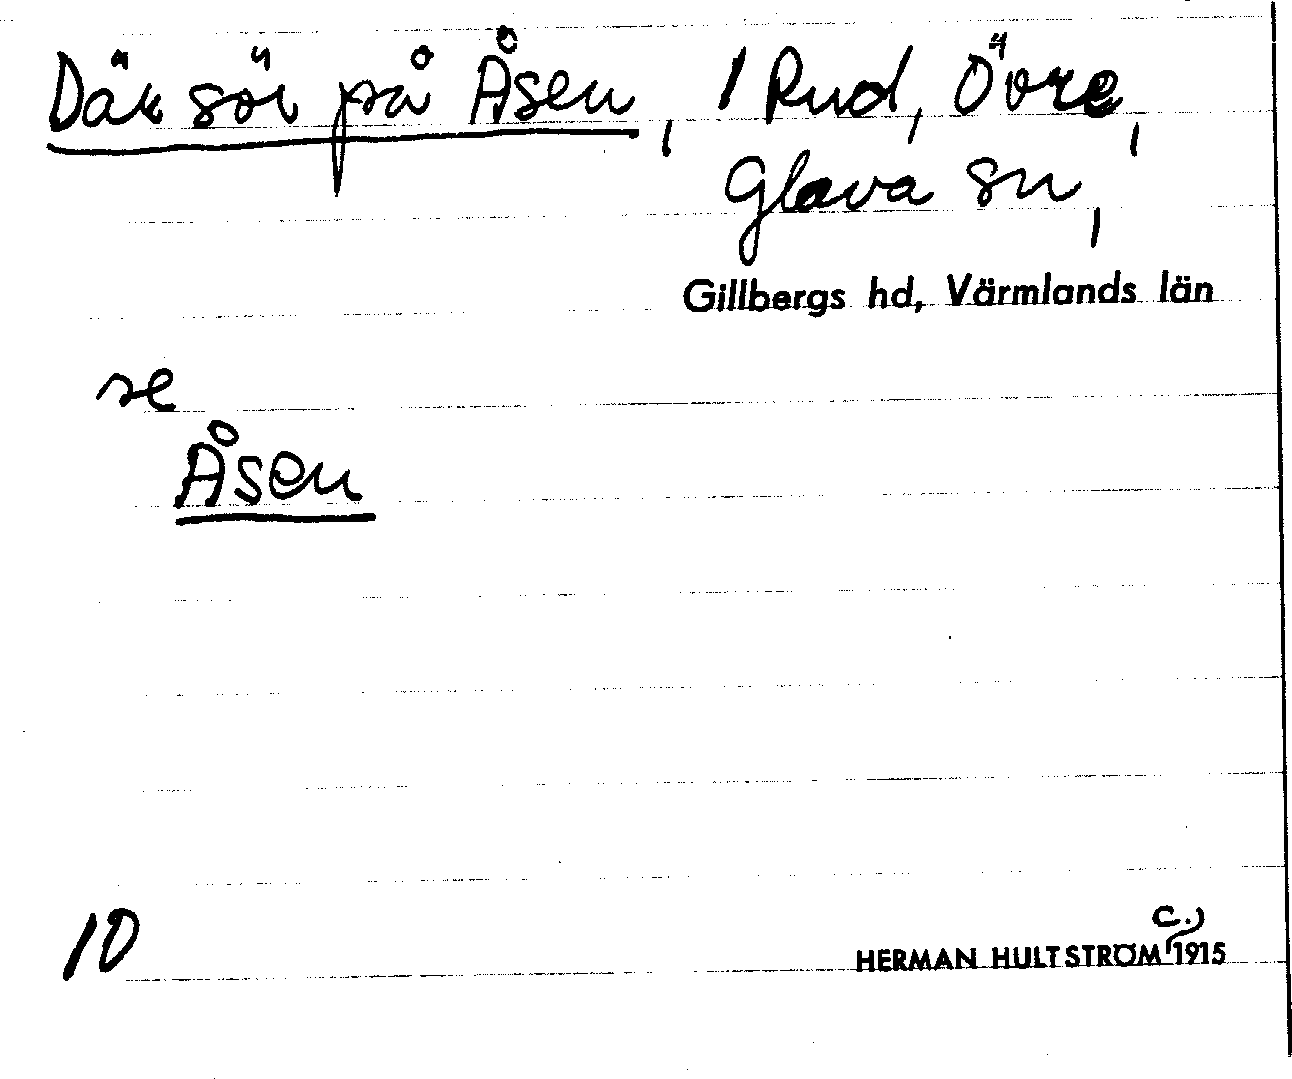 Där sör på Åsen, / Rud, Övre,
Glava sn,
Gillbergs hd, Värmlands län
se
Åsen
10
HERMAN HULTSTRÖM c. 1915